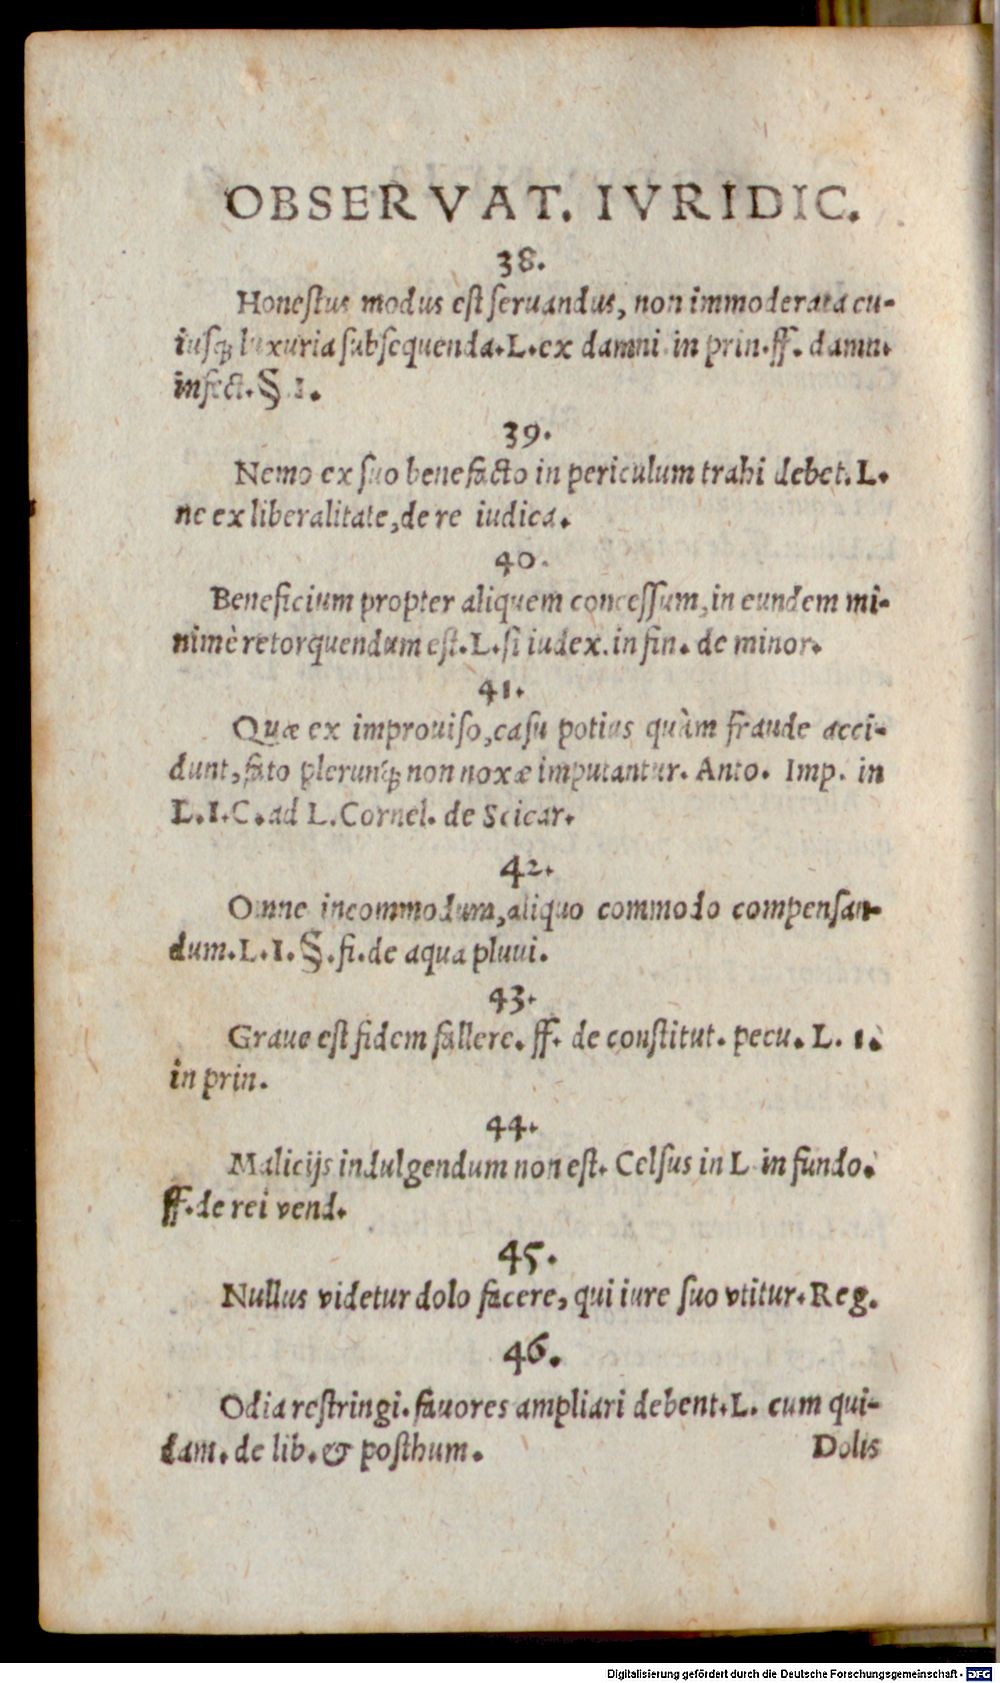 OBSERVAT. IVRIDIC.
38.
Honeſtus modus eſt ſeruandus, non immoderata cu-
iuſq; luxuria ſubſequenda. L. ex damni in prin. ff. damn.
infect. § 1.
39.
Nemo ex ſuo benefacto in periculum trahi debet. L.
ne ex liberalitate, de re iudica.
40.
Beneficium propter aliquem conceſſum, in eundem mi-
nimè retorquendum eſt. L. ſi iudex. in fin. de minor.
41.
Quæ ex improuiſo, caſu potius quàm fraude acci-
dunt, fato plerunq; non noxæ imputantur. Anto. Imp. in
L. I. C. ad L. Cornel. de Scicar.
42.
Omne incommodum, aliquo commodo compenſan-
dum. L. I. §. fi. de aqua pluui.
43.
Graue eſt fidem fallere. ff. de conſtitut. pecu. L. 1.
in prin.
44.
Malicijs indulgendum non eſt. Celſus in L in fundo.
ff. de rei vend.
45.
Nullus videtur dolo facere, qui iure ſuo vtitur. Reg.
46.
Odia reſtringi. fauores ampliari debent. L. cum qui-
dam. de lib. & poſthum.
Dolis
Digitalisierung gefördert durch die Deutsche Forschungsgemeinschaft - DFG